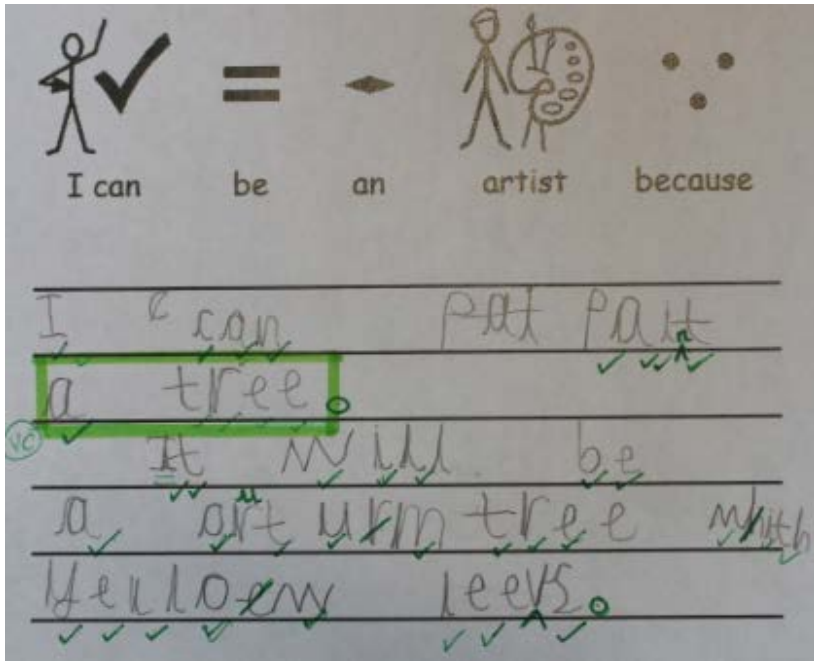 I can be an artist because
I can pat pait
a tree.
VC It will be
a ort urm tree whith
Yelloew leevs.